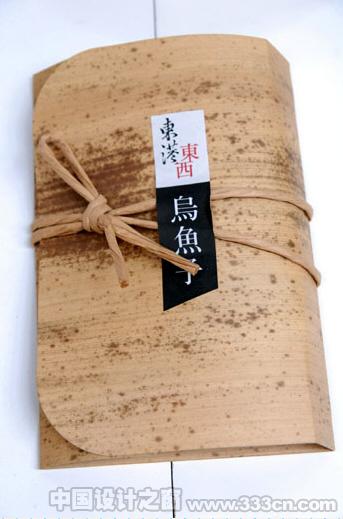 東港
東西
烏魚子
中国设计之窗
www.333cn.com